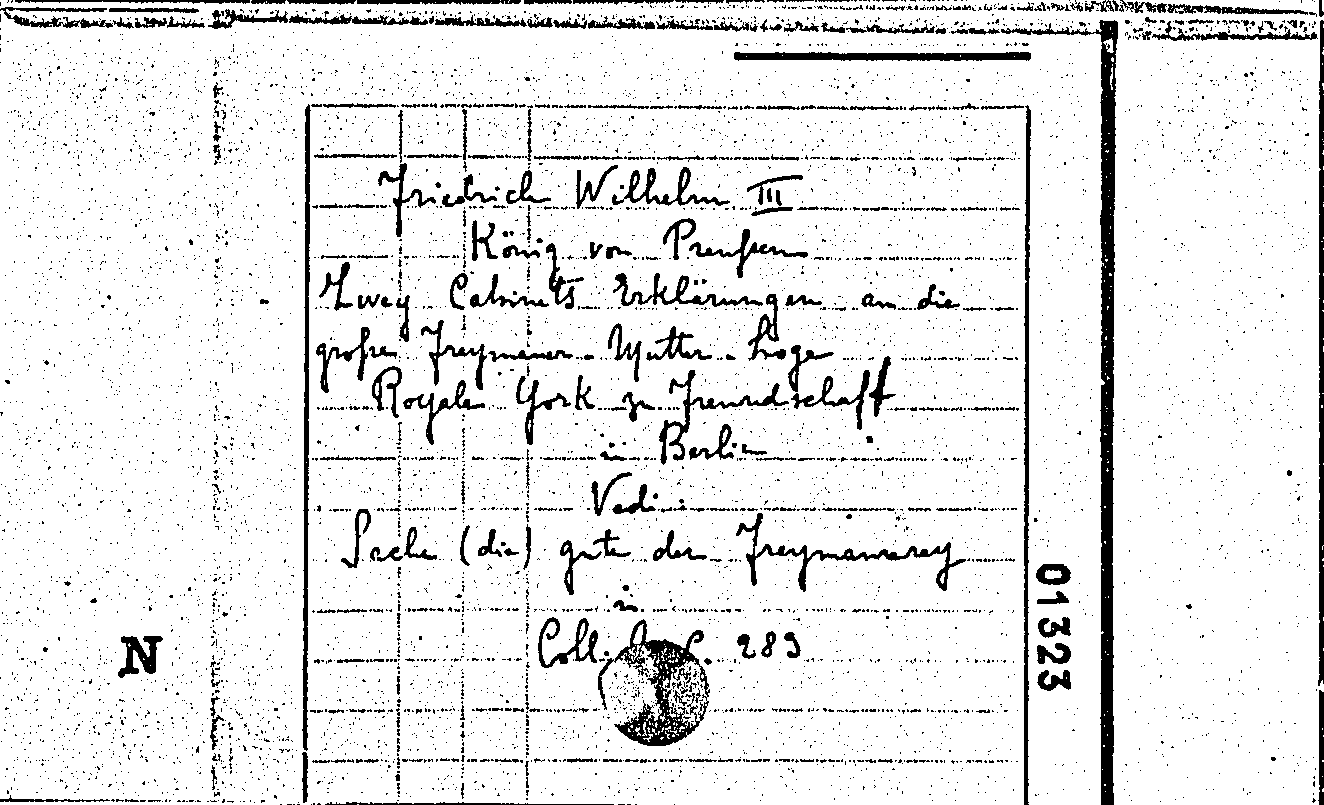 Friedrich Wilhelm III
König von Preußen
Zwey Cabinets Erklärungen an die
große Freymaurer-Mutter-Loge
Royale York zu Freundschaft
in Berlin
Vedi:
Sache (die) gute der Freymaurerey
in
Coll. C. 283
01323
N